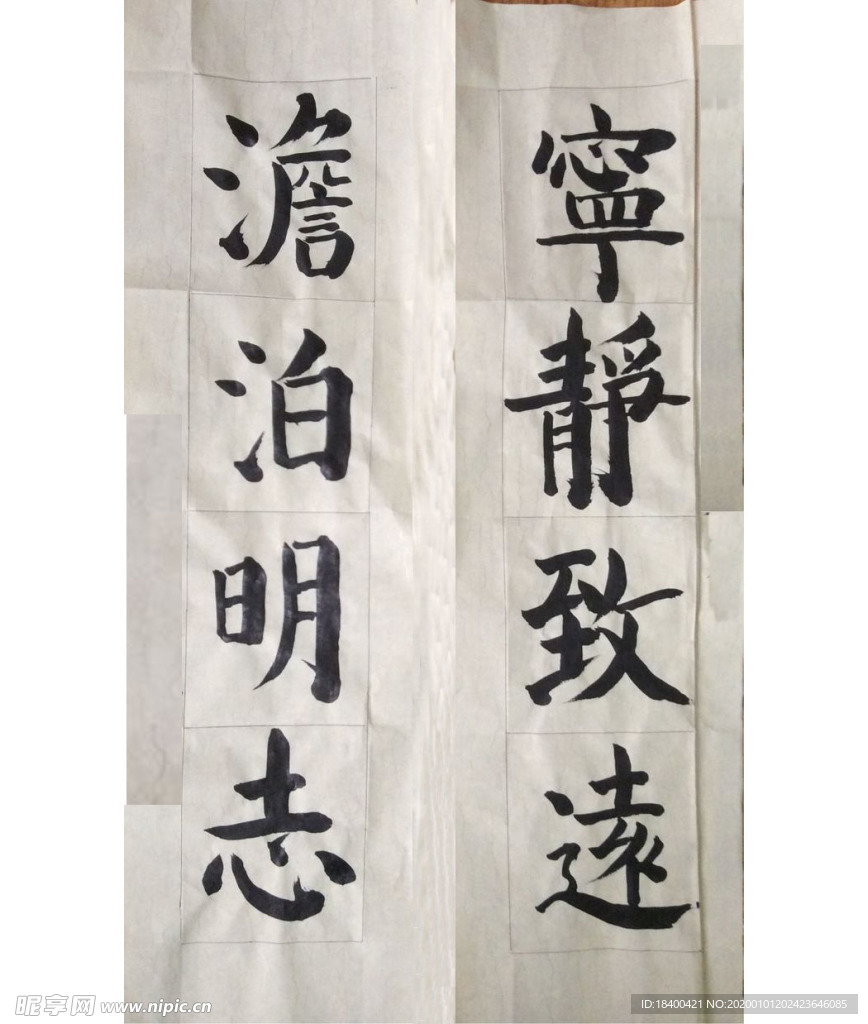 寧靜致遠
澹泊明志
昵享网 www.nipic.cn
ID:18400421 NO:20200101202423646085